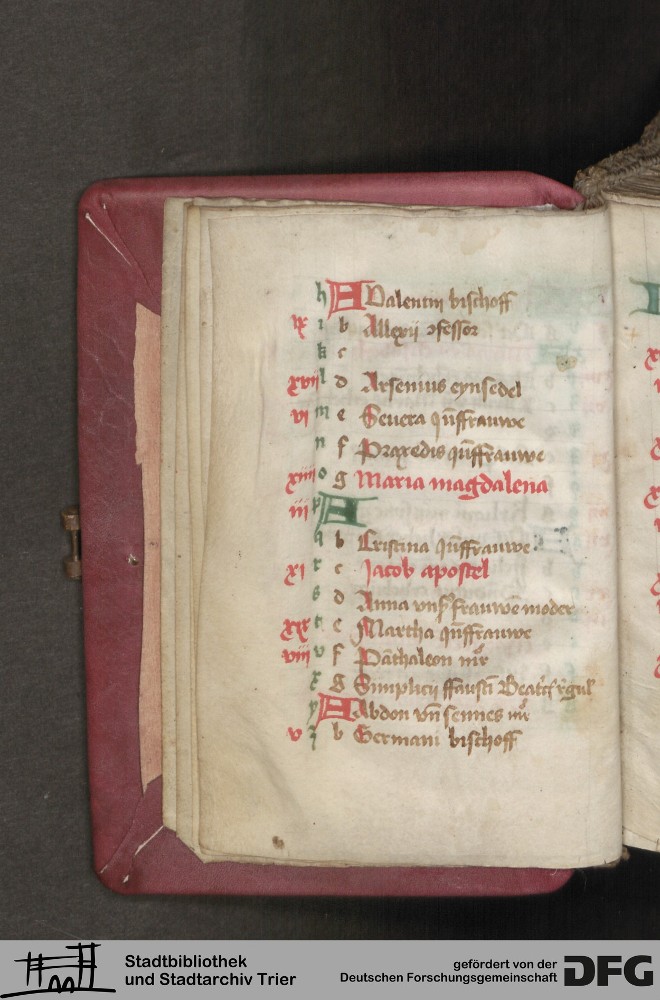 h A Valentin bischoff
ix i b Allexii ꝯfessor
k c
xvii l d Arsenius eynsedel
vi m e Seuera jūffrauwe
n f Praxedis jūffrauwe
xiiii o g Maria magdalena
iii p A
q b Cristina jūffrauwe
xi r c Jacob apostel
s d Anna vnß frauwē moder
xix t e Martha jūffrauwe
viii v f Pāthaleon mr̄
x g Simplicij ffaustī Beatc̄
y A Abdon vn̄ sennes mr̄
v z b Germani bischoff
Stadtbibliothek
und Stadtarchiv Trier
gefördert von der
Deutschen Forschungsgemeinschaft
DFG